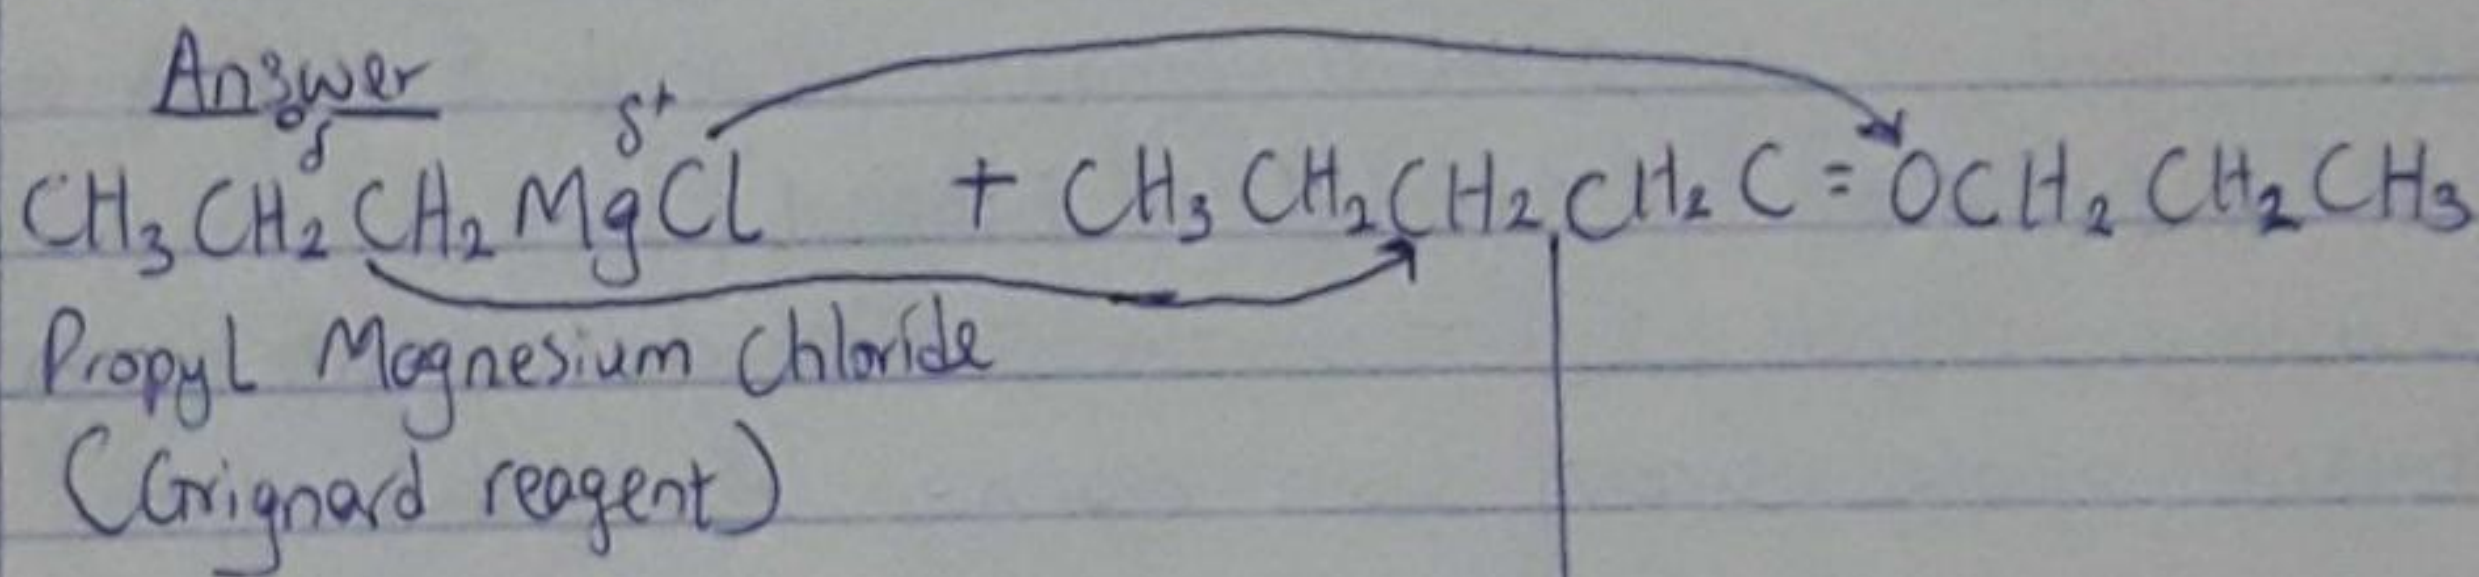 Answer
δ δ+
CH₃CH₂CH₂MgCl + CH₃CH₂CH₂CH₂C=OCH₂CH₂CH₃
Propyl Magnesium Chloride
(Grignard reagent)